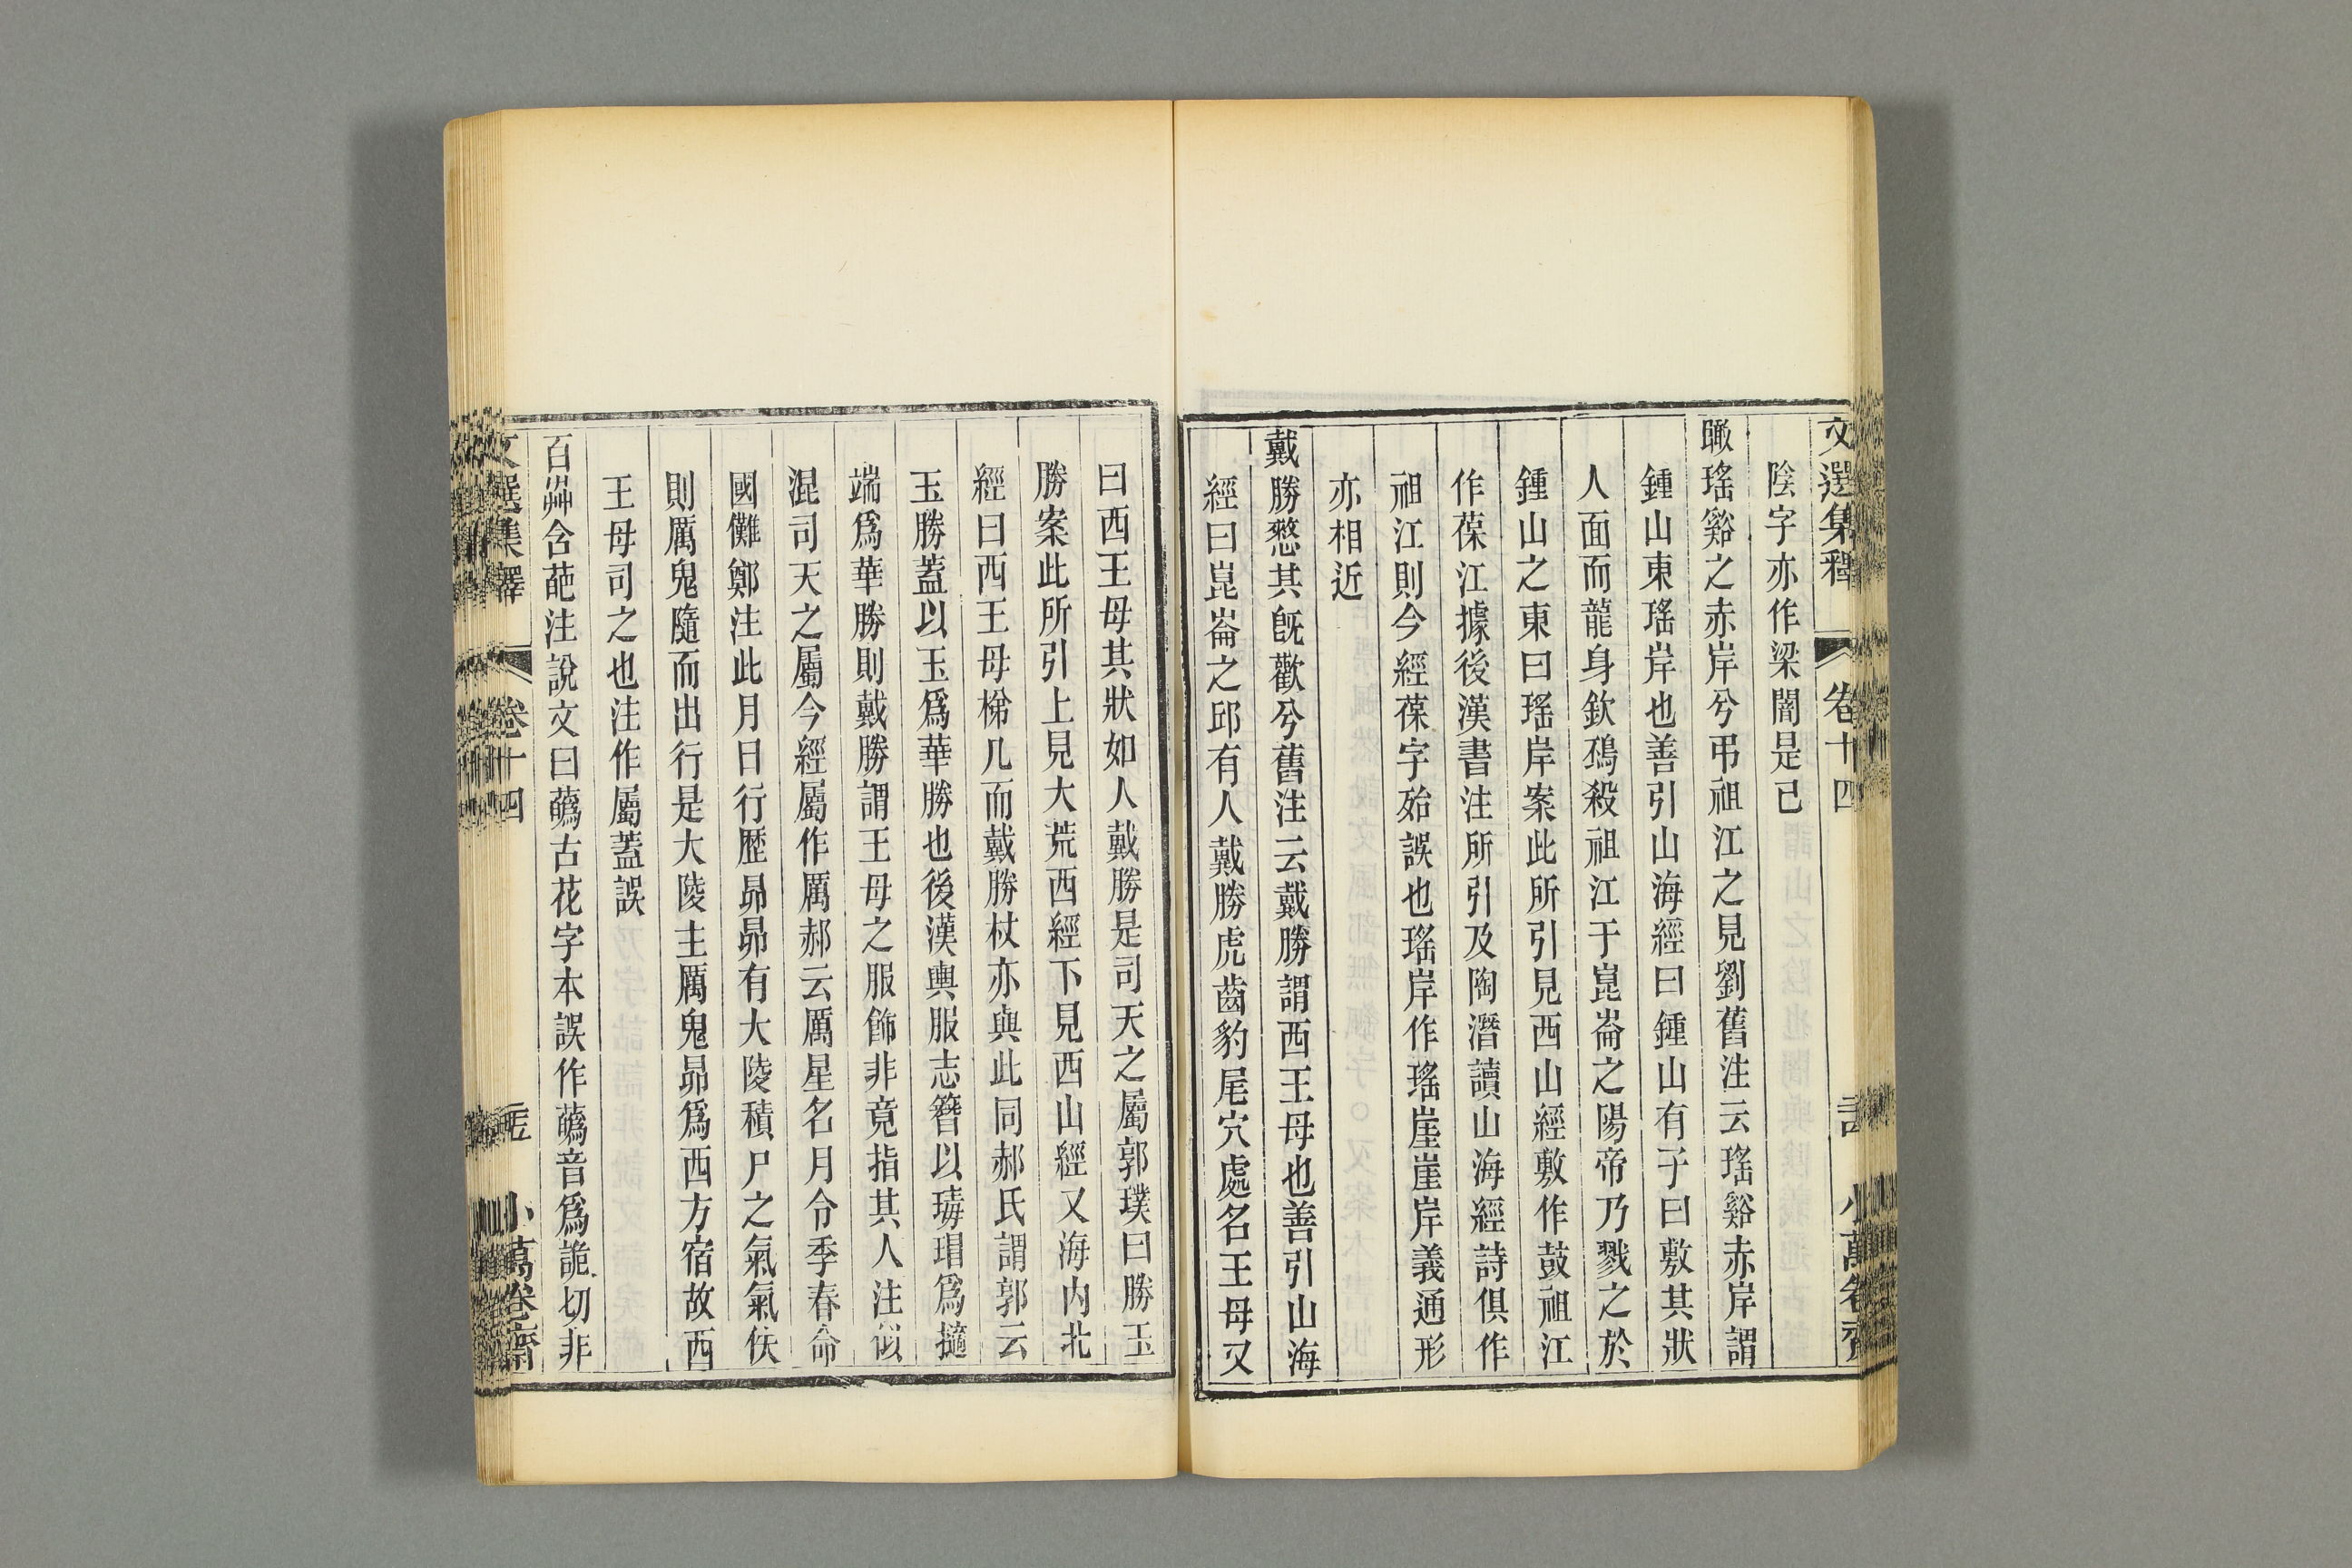 文選集釋 卷十四 小萬卷齋
陰字亦作梁闇是已
瞰瑤谿之赤岸兮弔祖江之見劉舊注云瑤谿赤岸謂
鍾山東瑤岸也善引山海經曰鍾山有子曰敷其狀
人面而龍身欽䲹殺祖江于崑崙之陽帝乃戮之於
鍾山之東曰瑤岸案此所引見西山經敷作鼓祖江
作葆江據後漢書注所引及陶潛讀山海經詩俱作
祖江則今經葆字殆誤也瑤岸作瑤崖崖岸義通形
亦相近
戴勝憖其旣歡兮舊注云戴勝謂西王母也善引山海
經曰崑崙之邱有人戴勝虎齒豹尾穴處名王母又
曰西王母其狀如人戴勝是司天之屬郭璞曰勝玉
勝案此所引上見大荒西經下見西山經又海内北
經曰西王母梯几而戴勝杖亦與此同郝氏謂郭云
玉勝蓋以玉爲華勝也後漢輿服志簪以瑇瑁爲擿
端爲華勝則戴勝謂王母之服飾非竟指其人注似
混司天之屬今經屬作厲郝云厲星名月令季春命
國儺鄭注此月日行歷昴昴有大陵積尸之氣氣佚
則厲鬼隨而出行是大陵主厲鬼昴爲西方宿故西
王母司之也注作屬蓋誤
百艸含葩注說文曰蘤古花字本誤作蘤音爲詭切非
文選集釋 卷十四 小萬卷齋